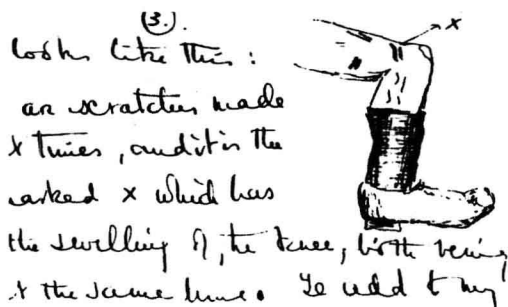 (3.).
looks like this:
are scratches made
x times, and it is the
arked x which has
the swelling of the knee, both being
t the same time. To add to my
x